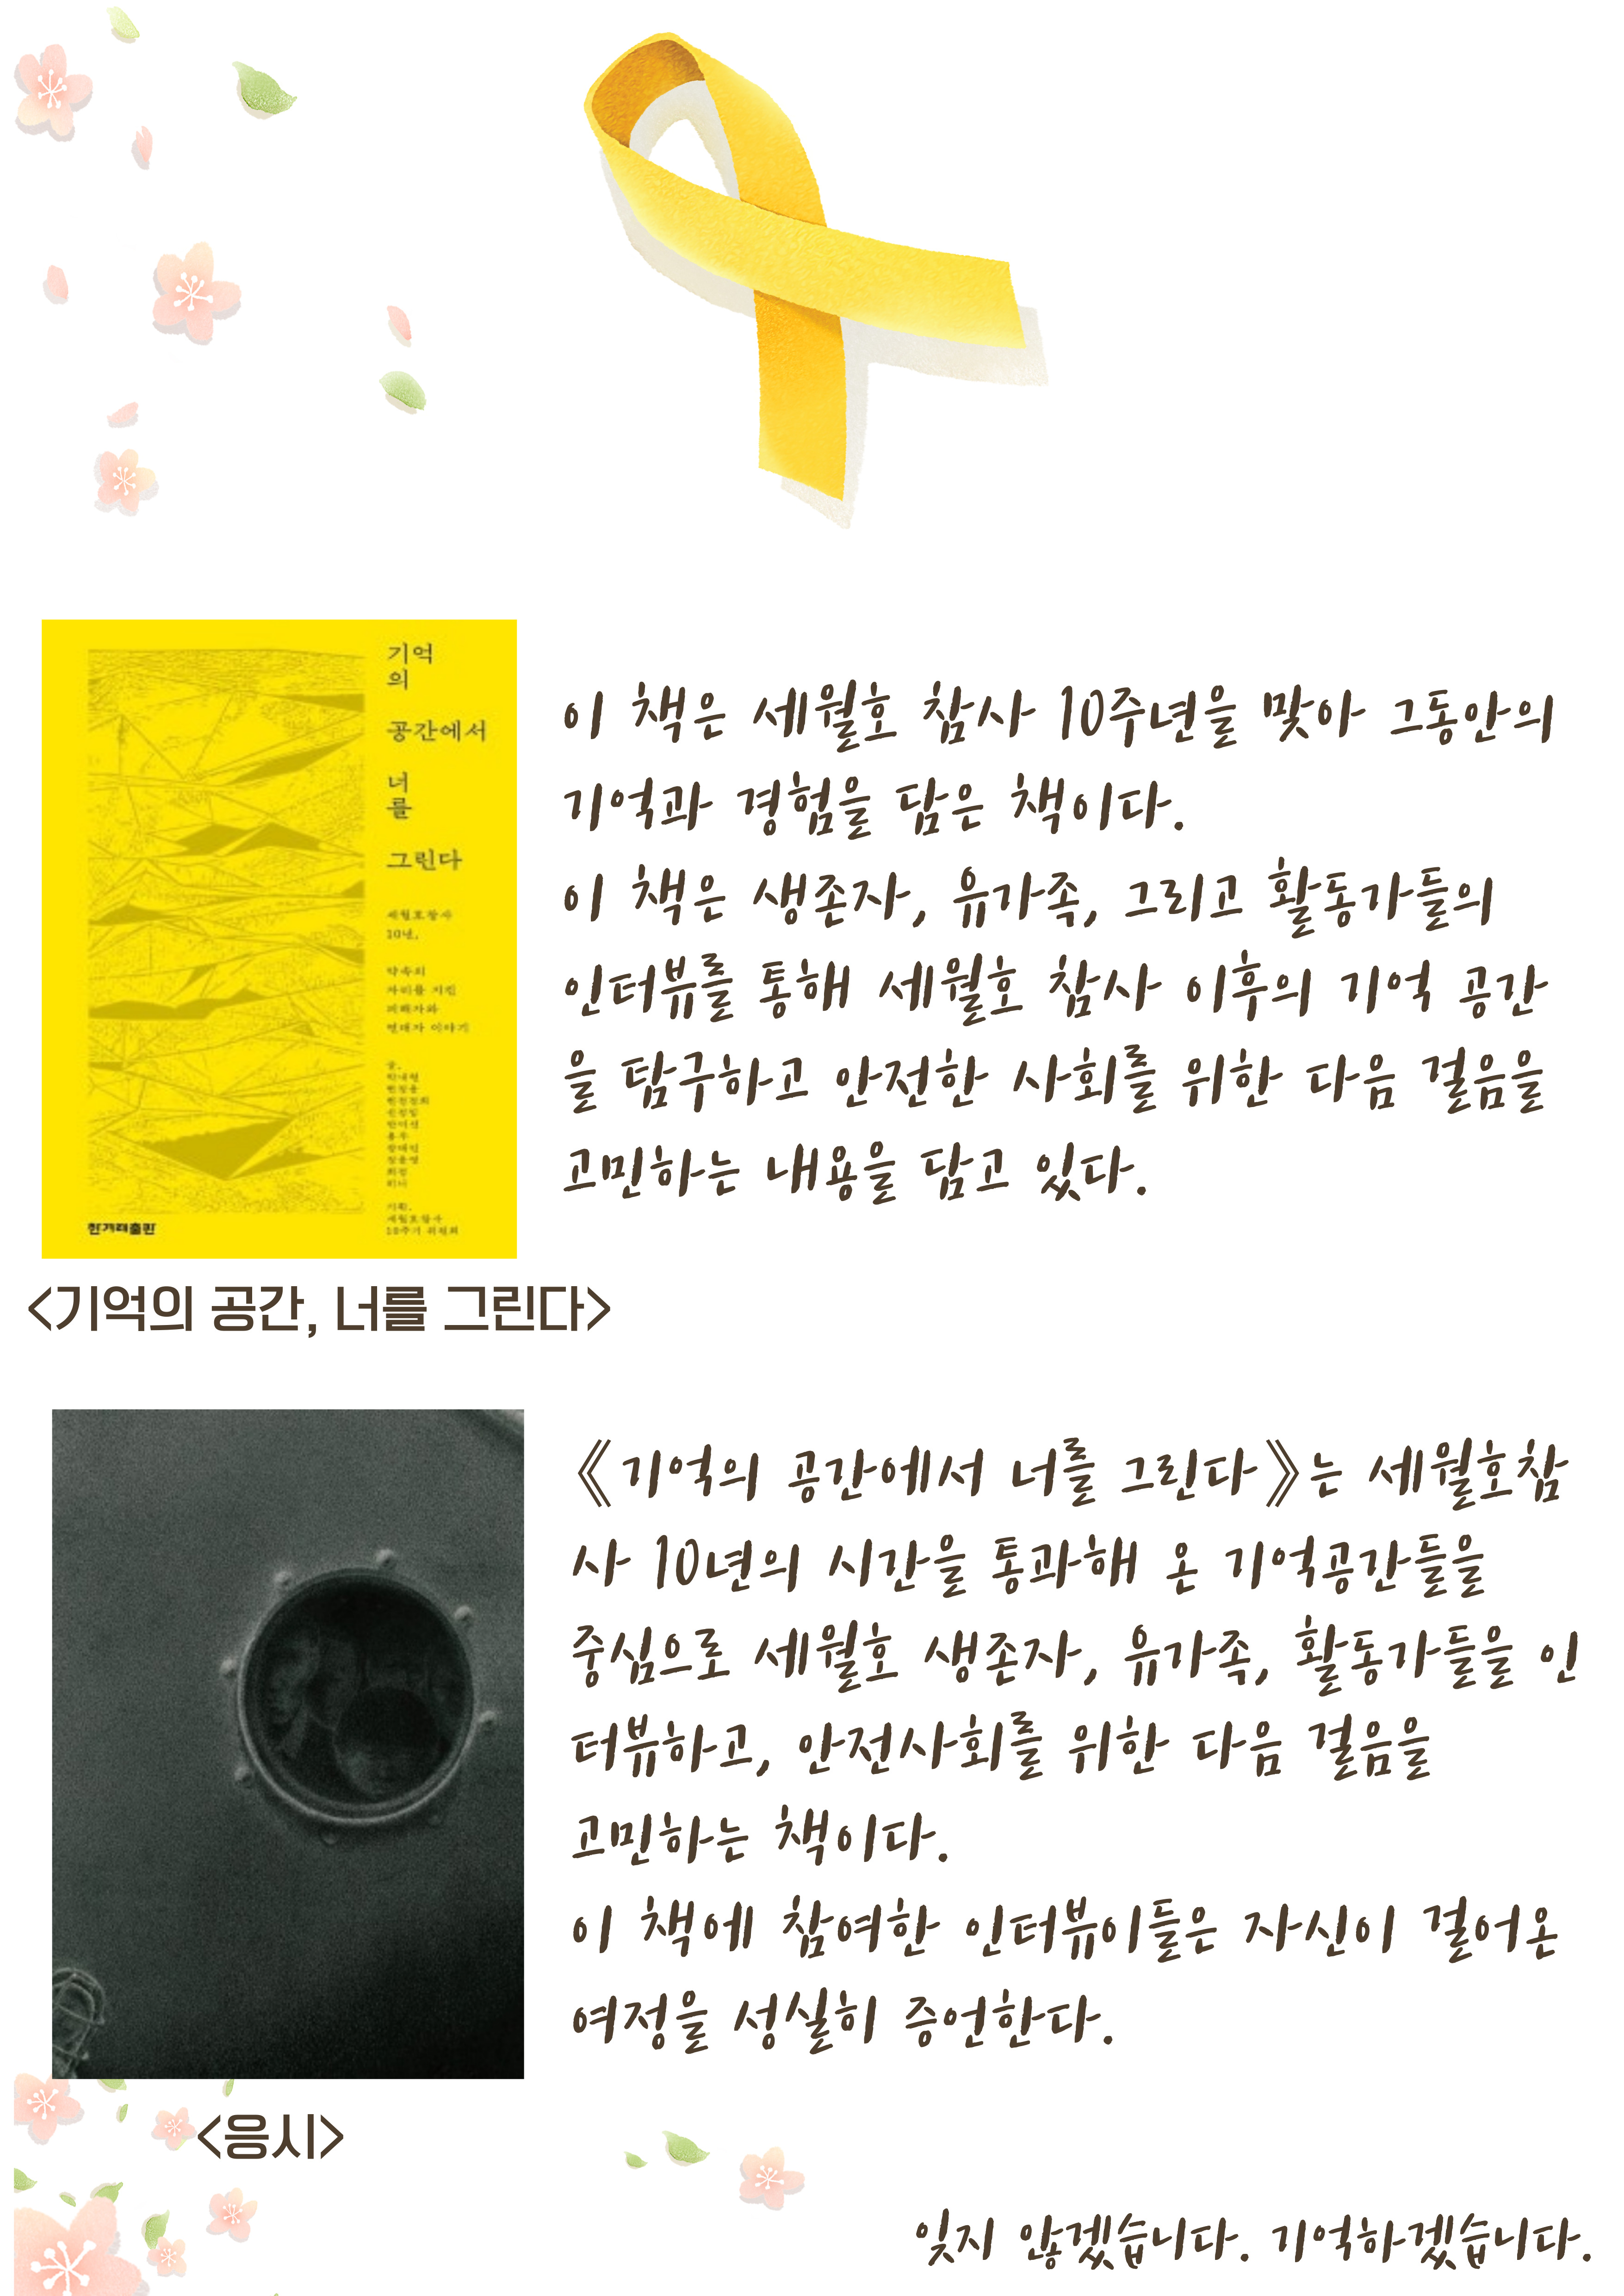 기억
의
공간에서
너
를
그린다
세월호참사
10년,
약속의
자리를 지킨
피해자와
연대자 이야기
글.
홍두
희정
기획.
세월호참사
10주기 위원회
한겨레출판
이 책은 세월호 참사 10주년을 맞아 그동안의
기억과 경험을 담은 책이다.
이 책은 생존자, 유가족, 그리고 활동가들의
인터뷰를 통해 세월호 참사 이후의 기억 공간
을 탐구하고 안전한 사회를 위한 다음 걸음을
고민하는 내용을 담고 있다.
<기억의 공간, 너를 그린다>
《기억의 공간에서 너를 그린다》는 세월호참
사 10년의 시간을 통과해 온 기억공간들을
중심으로 세월호 생존자, 유가족, 활동가들을 인
터뷰하고, 안전사회를 위한 다음 걸음을
고민하는 책이다.
이 책에 참여한 인터뷰이들은 자신이 걸어온
여정을 성실히 증언한다.
<응시>
잊지 않겠습니다. 기억하겠습니다.